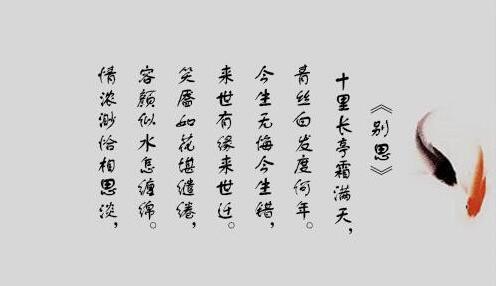 《别思》
十里长亭霜满天，
青丝白发度何年。
今生无悔今生错，
来世有缘来世迁。
笑靥如花堪缱绻，
容颜似水怎缠绵。
情浓渺恰相思淡，